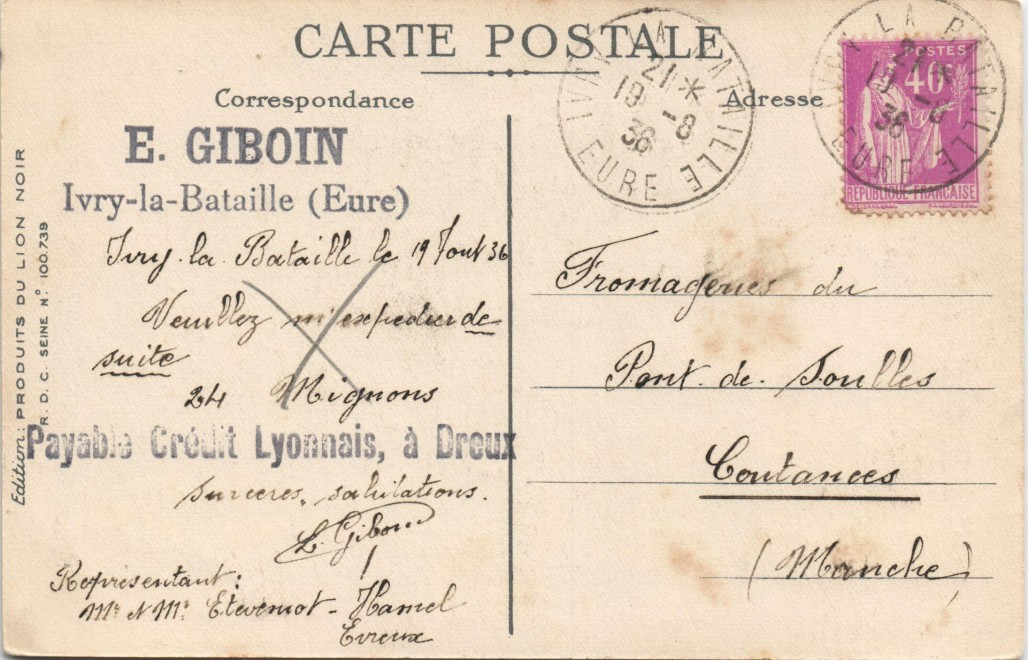 CARTE POSTALE
Correspondance
Adresse
E. GIBOIN
Ivry-la-Bataille (Eure)
Ivry-la-Bataille le 19 Aout 36
Veuillez m'expedier de
suite
24 Mignons
Payable Crédit Lyonnais, à Dreux
sinceres salutations.
Giboin
Représentant:
Hamel
Evreux
Edition: PRODUITS DU LION NOIR
R. D. C. SEINE N° 100.739
IVRY LA BATAILLE
21 *
19 -8
36
EURE
IVRY LA BATAILLE
21 *
19 -8
36
EURE
POSTES
40c
RÉPUBLIQUE FRANÇAISE
Fromageries du
Pont-de-Soulles
Coutances
(Manche)